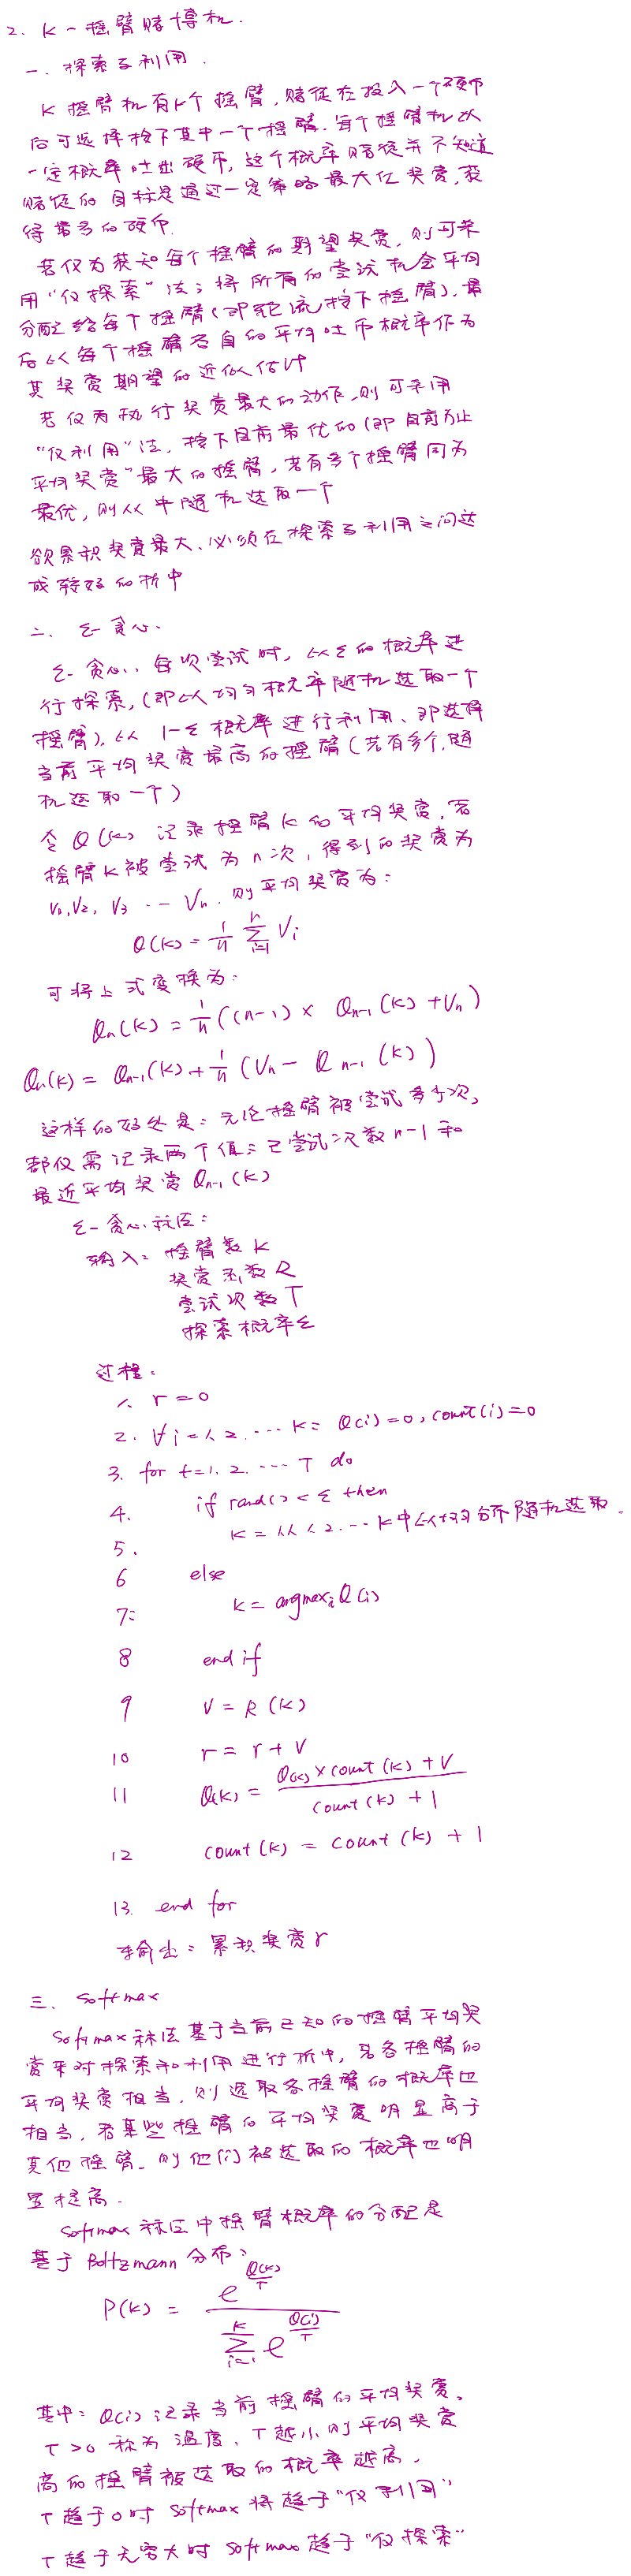 2. K-摇臂赌博机.
一. 探索与利用.
K 摇臂机有K个摇臂, 赌徒在投入一个硬币
后可选择按下其中一个摇臂. 每个摇臂机以
一定概率吐出硬币, 这个概率赌徒并不知道
赌徒的目标是通过一定策略最大化奖赏, 获
得最多的硬币.
若仅为获知每个摇臂的期望奖赏, 则可采
用“仅探索”法; 将所有的尝试机会平均
分配给每个摇臂(即轮流按下摇臂), 最
后以每个摇臂各自的平均吐币概率作为
其奖赏期望的近似估计
若仅为执行奖赏最大的动作, 则可采用
“仅利用”法, 按下目前最优的(即目前为止
平均奖赏”最大的摇臂, 若有多个摇臂同为
最优, 则从中随机选取一个
欲累积奖赏最大、必须在探索与利用之间达
成较好的折中
二、 ε-贪心.
ε-贪心: 每次尝试时, 以ε的概率进
行探索, (即以均匀概率随机选取一个
摇臂), 以 1-ε 概率进行利用、即选择
当前平均奖赏最高的摇臂(若有多个, 随
机选取一个)
令 Q(k) 记录摇臂 k 的平均奖赏, 若
摇臂 k 被尝试为 n 次, 得到的奖赏为
V₁, V₂, V₃ ... Vₙ. 则平均奖赏为:
Q(k) = 1/n Σ_{i=1}^{n} Vᵢ
可将上式变换为:
Qₙ(k) = 1/n ((n-1) × Qₙ₋₁(k) + Vₙ)
Qₙ(k) = Qₙ₋₁(k) + 1/n (Vₙ - Qₙ₋₁(k))
这样的好处是: 无论摇臂被尝试多少次,
都仅需记录两个值: 已尝试次数 n-1 和
最近平均奖赏 Qₙ₋₁(k)
ε-贪心算法:
输入: 摇臂数 K
奖赏函数 R
尝试次数 T
探索概率 ε
过程:
1. r = 0
2. ∀i = 1, 2. .... K: Q(i) = 0, count(i) = 0
3. for t = 1, 2. .... T do
4. if rand() < ε then
5. k = 从 1, 2 .... K 中以均匀分布随机选取.
6 else
7: k = argmaxᵢ Q(i)
8 end if
9 v = R(k)
10 r = r + v
11 Q(k) = (Q(k) × count(k) + v) / (count(k) + 1)
12 count(k) = count(k) + 1
13. end for
输出: 累积奖赏 r
三、 softmax
Softmax 算法基于当前已知的摇臂平均奖
赏来对探索和利用进行折中, 若各摇臂的
平均奖赏相当, 则选取各摇臂的概率也
相当, 若某些摇臂的平均奖赏明显高于
其他摇臂. 则他们被选取的概率也明
显提高.
softmax 算法中摇臂概率的分配是
基于 Boltzmann 分布:
P(k) = e^{Q(k)/τ} / Σ_{i=1}^{K} e^{Q(i)/τ}
其中: Q(i) 记录当前摇臂的平均奖赏,
τ > 0 称为温度, τ 越小则平均奖赏
高的摇臂被选取的概率越高,
τ 趋于0时 softmax 将趋于“仅利用”
τ 趋于无穷大时 softmax 趋于“仅探索”